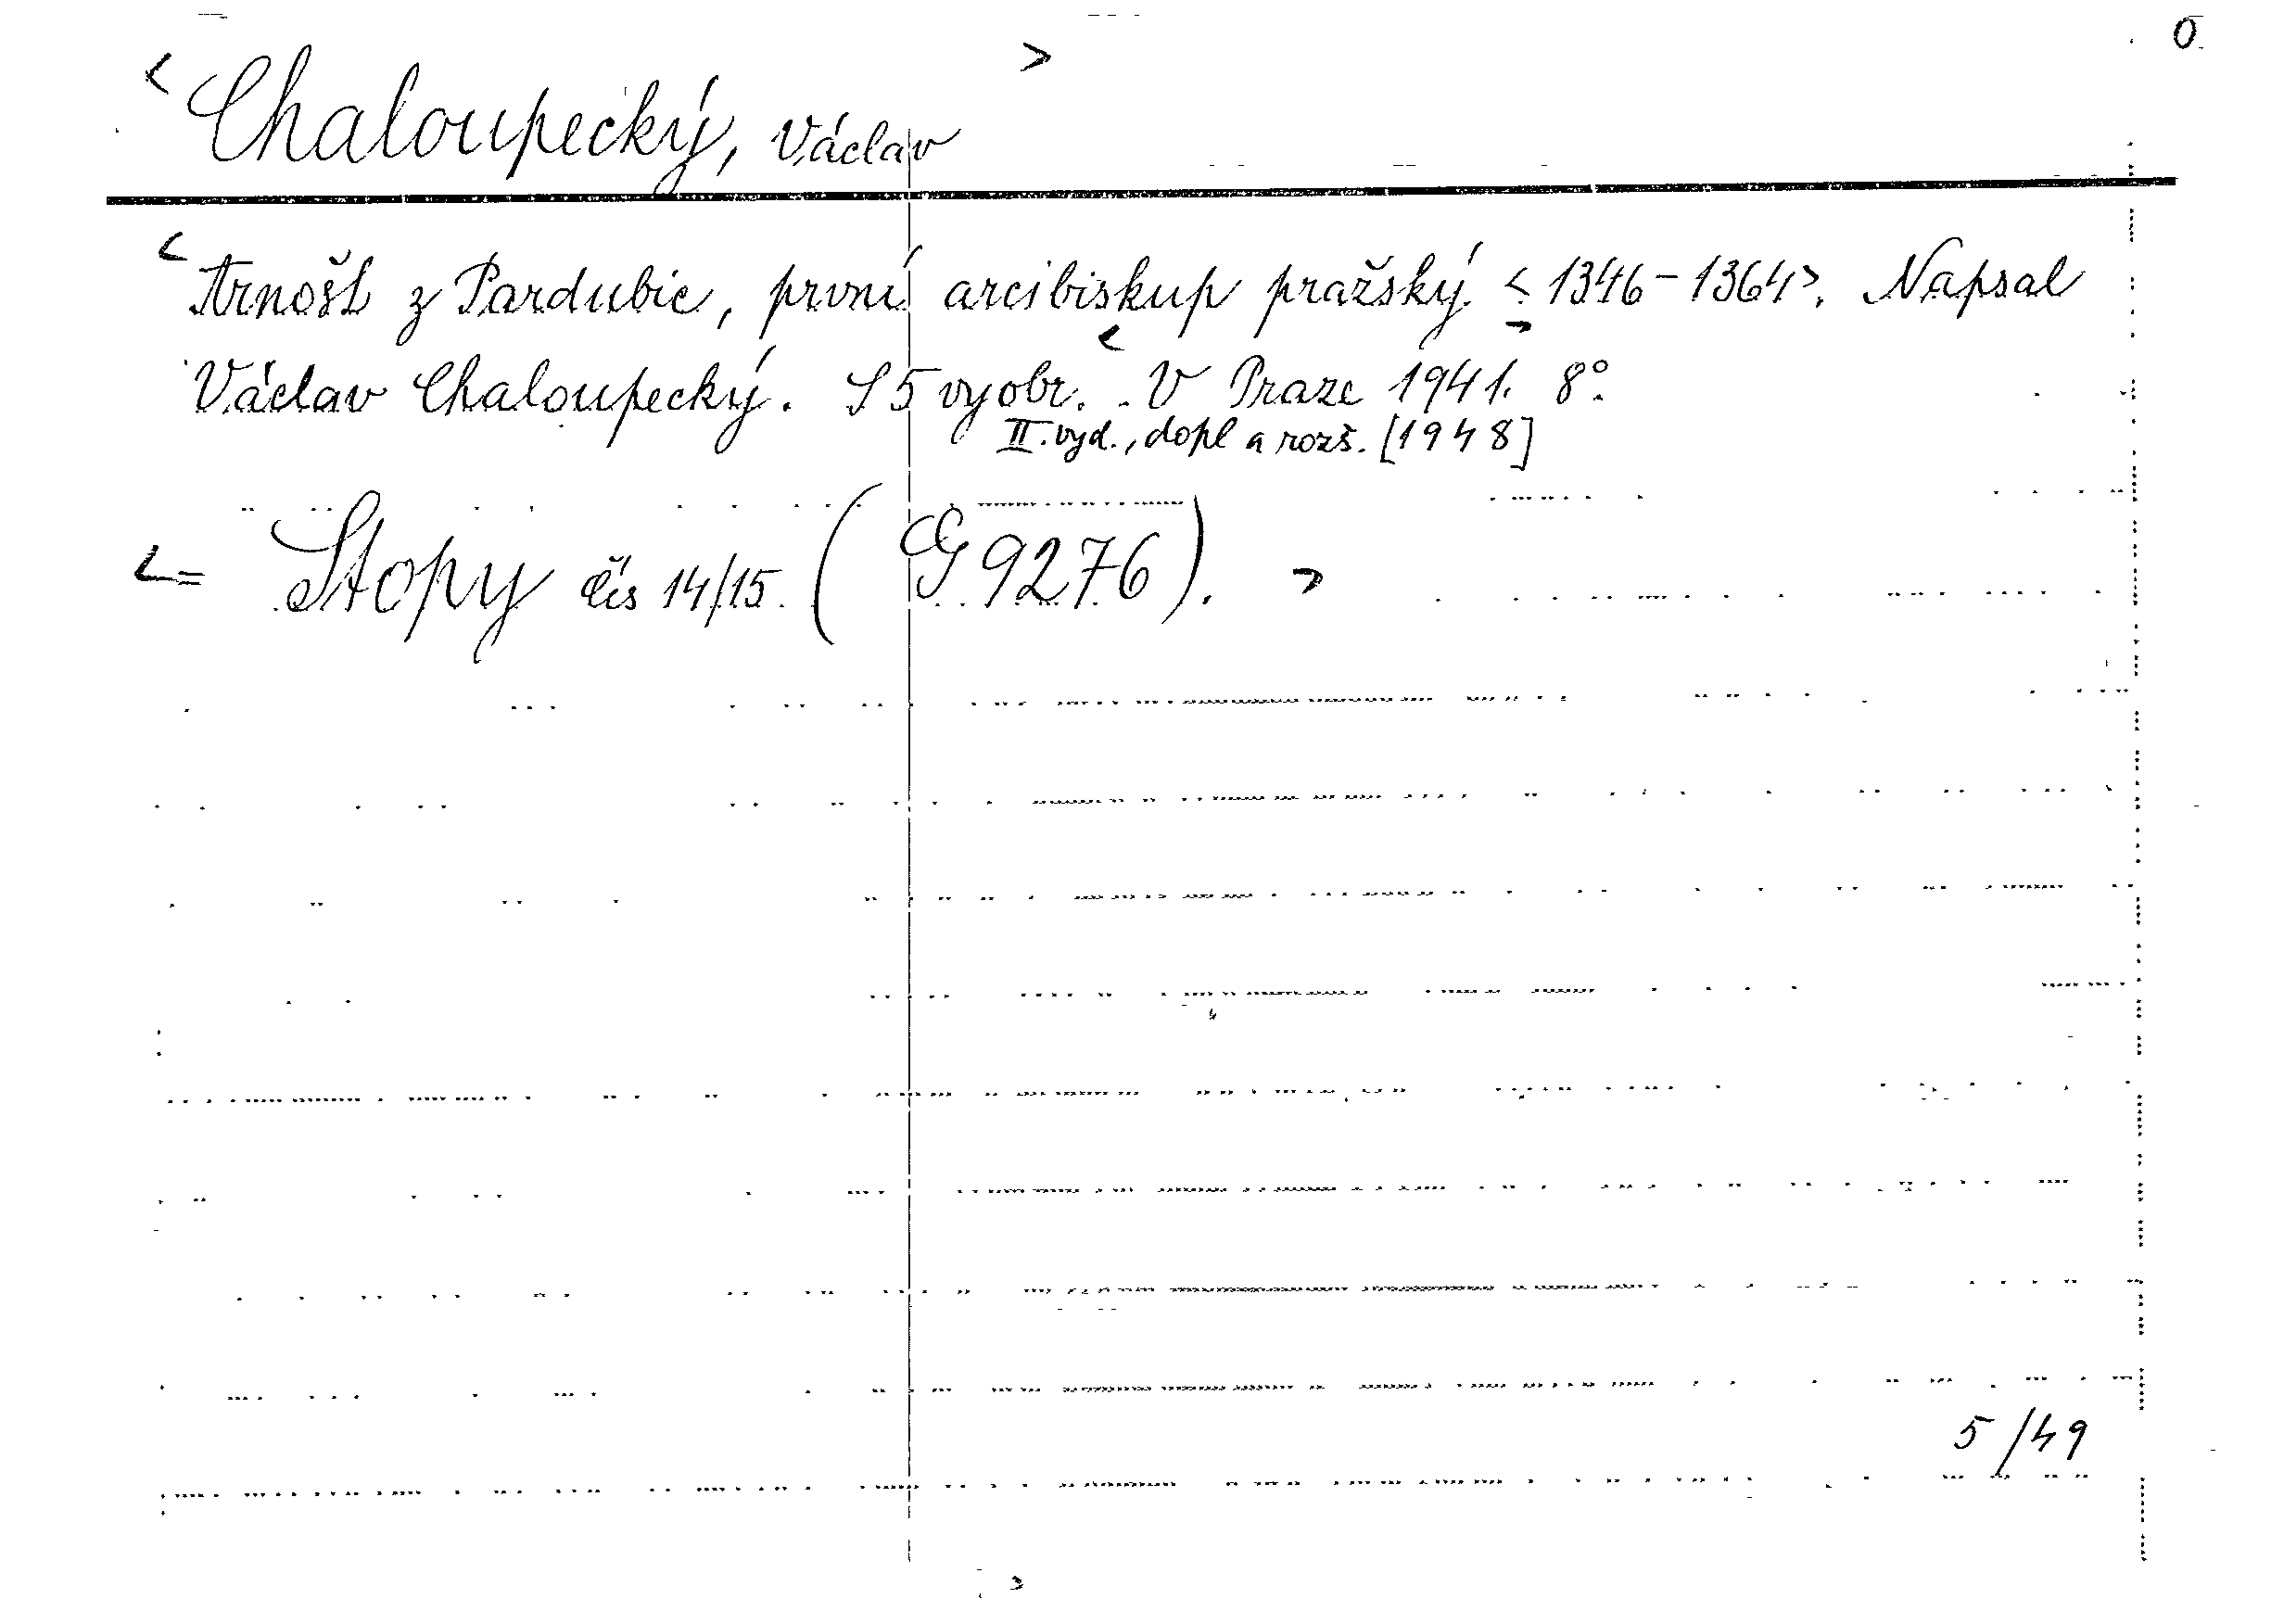 0
< Chaloupecký, Václav >
< Arnošt z Pardubic, první arcibiskup pražský < 1346-1364>. Napsal
Václav Chaloupecký. S 5 vyobr. < V Praze 1941. > 8°.
II. vyd., dopl a rozš. [1948]
< = Stopy čís 14/15. (G 9276). >
5/49